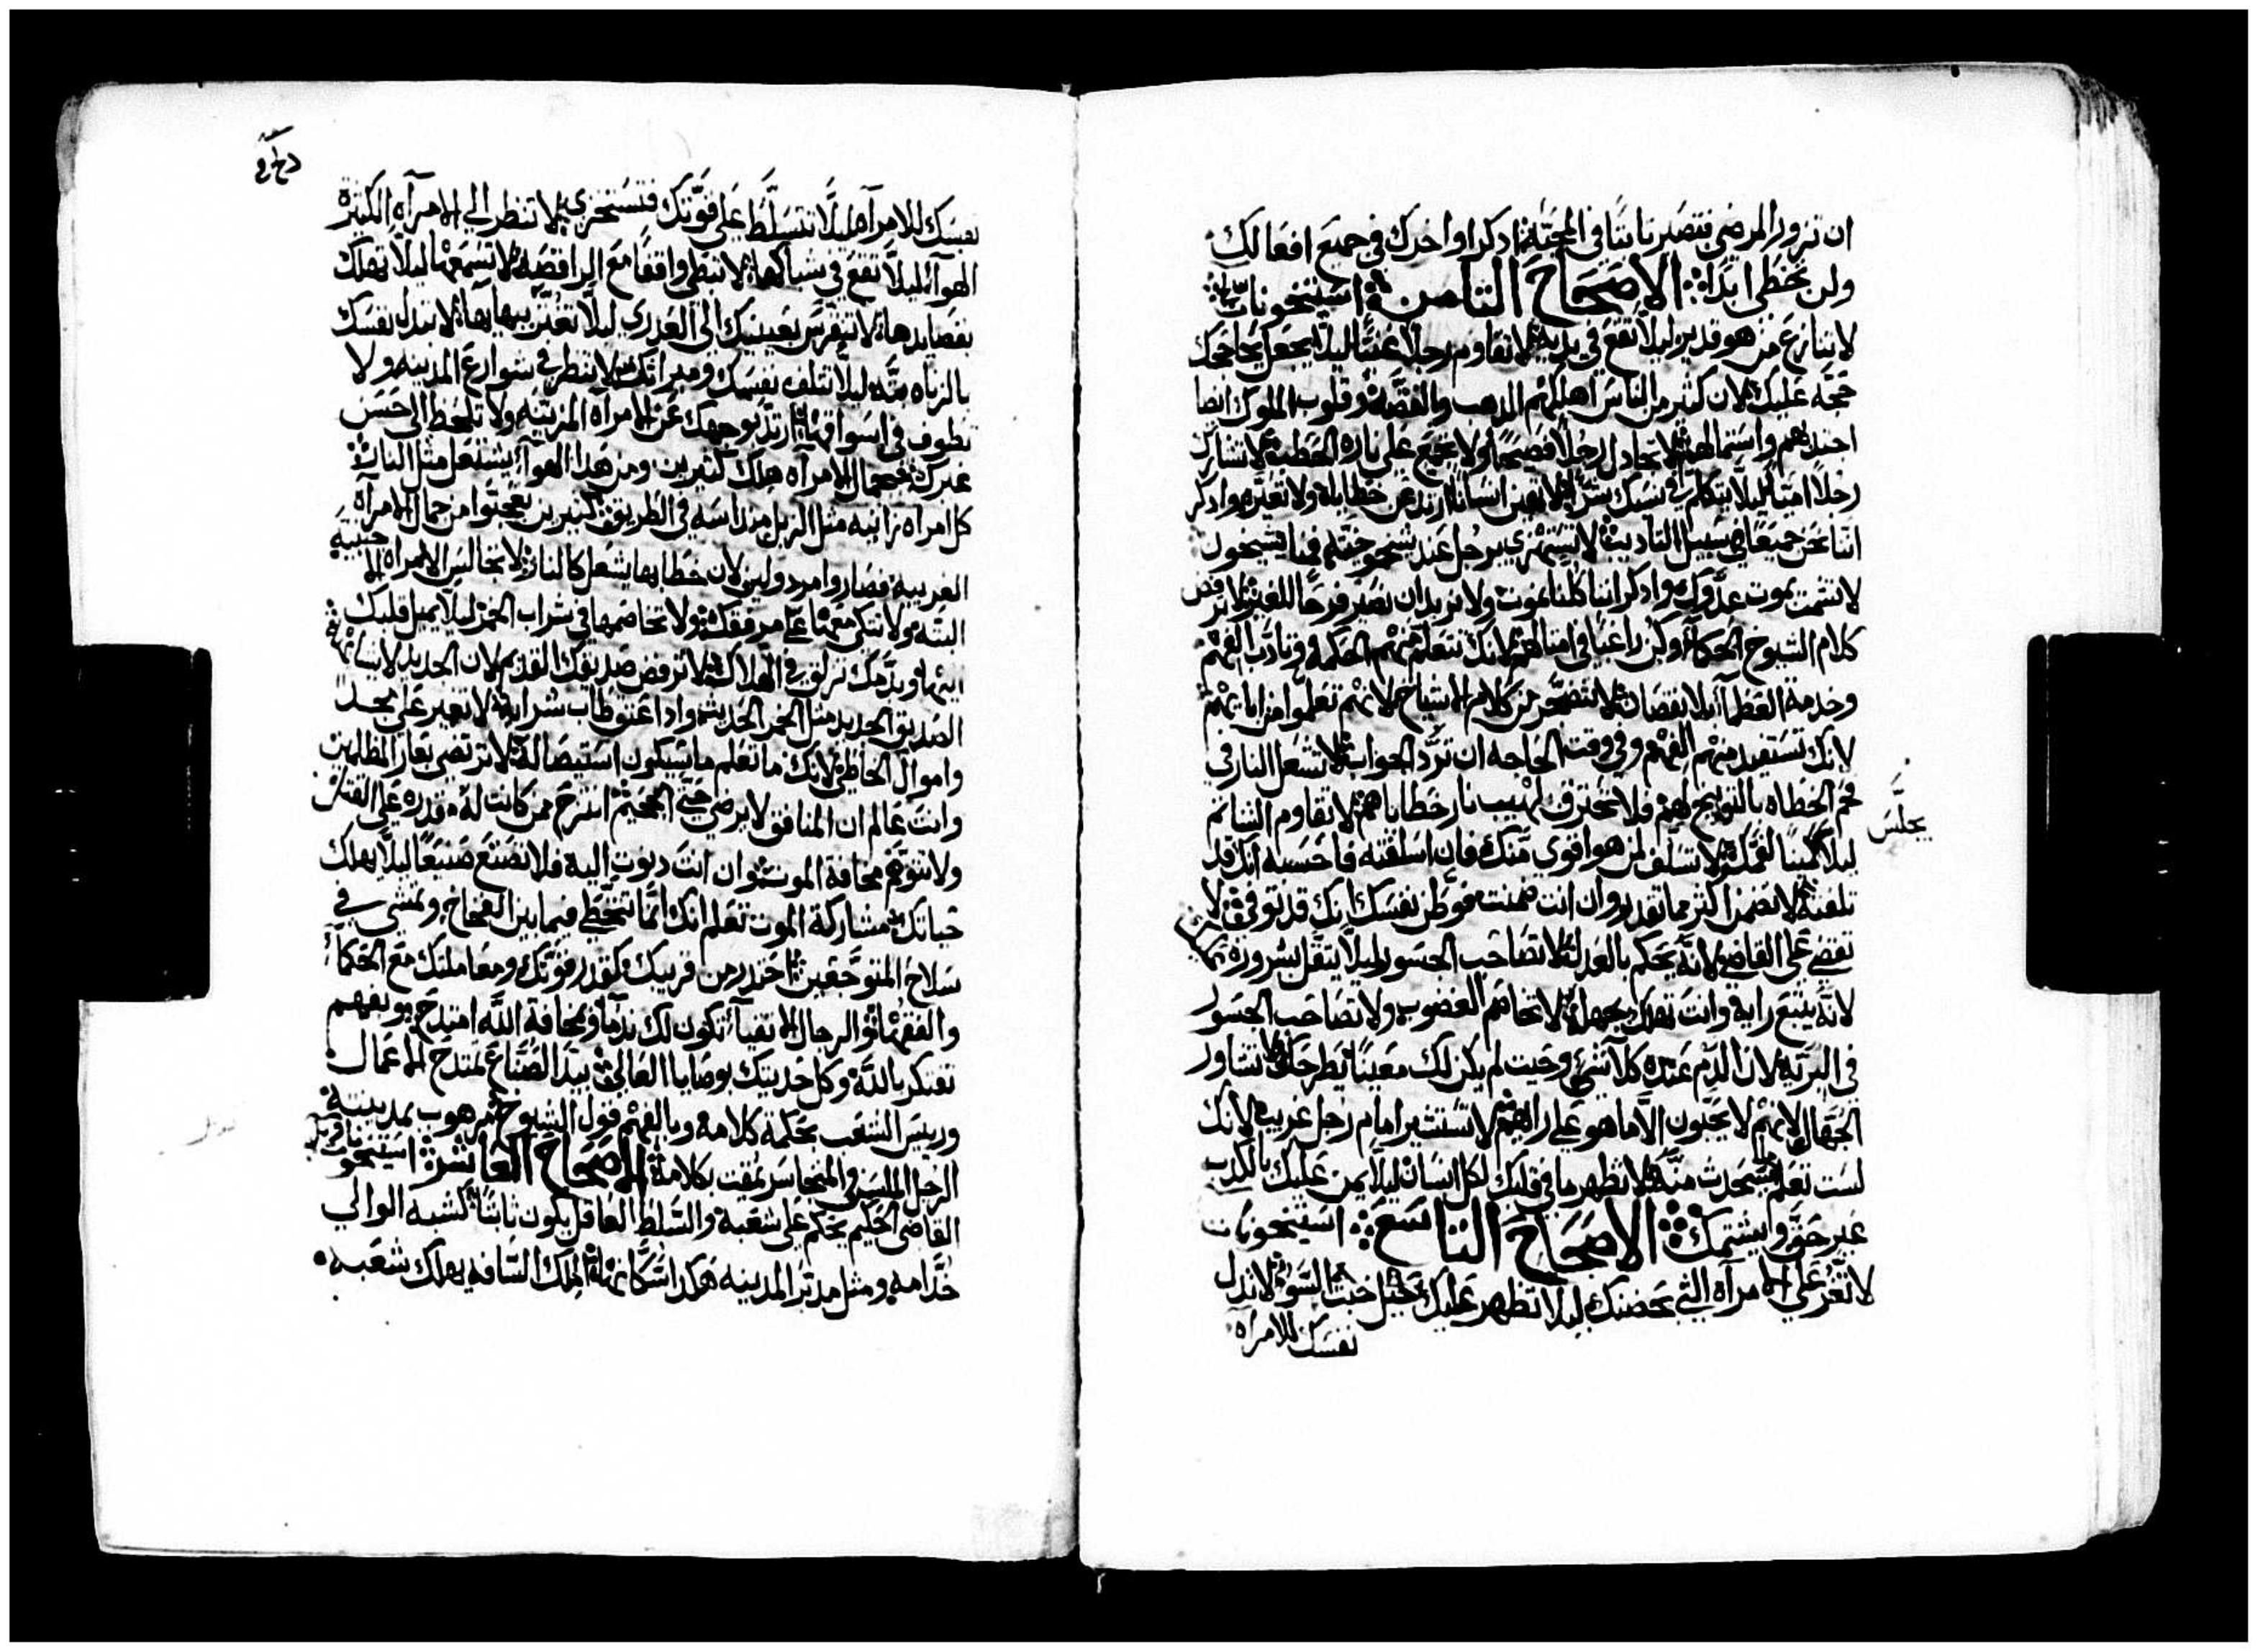 ان تزور المرضى فتصير ثابتا في المحبة اذكر اواخرك في جميع افعالك
ولن تخطى ابدا الاصحاح الثامن استيخونات
لا تنازع من هو قدير ليلا تقع في يديه لا تقاوم رجلا غنيا ليلا يجعل يحاججك
حجه عليك لان كثير من الناس اهلكهم الدهب والفضه وقلوب الملوك ايضا
اجتدبهم واستمالهم لا تجادل رجلا فصيحا ولا تجمع على ناره الحطب لا تشارك
رجلا اميا ليلا يتكلم في نسبك بشر لا تهين انسانا ارتد عن خطاياه ولا تعيره وادكر
اننا نحن جميعا في سبيل التاديب لا تستهزي برجل عند شيخوخته فمنا يشيخون
لا تشمت بموت عدوك وادكر اننا كلنا نموت ولا نريد ان نصير فرحا للغير لا ترفض
كلام الشيوخ الحكماء وكن راغبا في امثالهم لانك تتعلم منهم الحكمة وتادب الفهم
وخدمه العظماء بلا نقصان لا تتضجر من كلام الاشياخ لانهم تعلموا من اباءهم
لانك تستفيد منهم الفهم وفي وقت الحاجه ان ترد الجواب لا تشعل النار في
فحم الخطاه بالتوبيخ لهم ولا تحترق بلهيب نار خطاياهم لا تقاوم الشاتم
يجلس
ليلا كمينا لفمك لا تسلف لمن هو اقوى منك فان اسلفته فاحسبه انك قد
تلفته لا تضمن اكثر مما تقدر وان انت ضمنت فوطن نفسك انك قد توفي لا
تقضي على القاضي لانه يحكم بالعدل لا تصاحب الجسور ليلا يثقل بشروره
لانه يتبع رايه وانت تهلك بجهله لا تخاصم الغضوب ولا تصاحب الجسور
في البرية لان الدم عنده كلا شي وحيت لم يكن لك معينا يطرحك لا تشاور
الجهال لانهم لا يحبون الا ما هو على راهم لا تستشير امام رجل غريب لانك
لست تعلم ما يحدث منه لا تظهر ما في قلبك لكل انسان ليلا يمن عليك بالكدب
غير حق ويشتمك الاصحاح التاسع استيخونات
لا تغر على الامرآه التي بحضنك ليلا تظهر عليك خبث السو لا تدل
نفسك للامراه
نفسك للامرآه ليلا تتسلط على قوتك فتستخزي لا تنظر الى الامرآه الكثيرة
الهوآ ليلا تقع في شباكها لا تبطي واقفا مع الراقصه لا تسمعها ليلا تهلك
بفصايدها لا تتفرس بعينيك الى العدرى ليلا تعثر ببهايها لا تبدل نفسك
بالزناه بته ليلا تتلف نفسك وميراتك لا تنظر في شوارع المدينه ولا
تطوف في اسواقها ارتد بوجهك عن الامرآه المزينه ولا تلحظ الى حسن
غيرك فجمال الامرآه هلك كثيرين ومن هدا الهوآ يشتعل مثل النار
كل امراه زانيه مثل الزبل مندراسه في الطريق كثيرين تعجبوا من جمال الامرآه
الغريبه فصاروا مردولين لان خطابها يشعل كالنار لا تجالس الامراه الاجنبيه
البته ولا تتكي معها على مرفقك ولا تخاصمها في شراب الخمر ليلا يميل قلبك
اليها وبدمك تزلق في الهلاك لا ترفض صديقك القديم لان الجديد لا يشابهه
الصديق الجديد مثل الخمر الحديث وادا عتق طاب شرابه لا تغير على مجد
واموال الخاطي لانك ما تعلم ما سيكون استيصاله لا ترتضي بعار المظلمين
وانت عالم ان المنافق لا يرضي حتى الجحيم انتزح ممن كانت له قدره على القتل
ولا تتوهم مخافة الموت وان انت دنوت اليه فلا تصنع صنيعا ليلا يهلك
حياتك مشاركة الموت تعلم انك انما تتخطى فيما بين الفخاخ وتمشي في
سلاح المتوجعين احتدر من قريبك كقدر قوتك ومعاملتك مع الحكماء
والفقهاء والرجال الاتقياء تكون لك ندماء وبمخافة الله امتدح وبفهم
تفتكر بالله وكل حديتك بوصايا العالي بيد الصناع تمتدح الاعمال
وريس الشعب بحكمة كلامه وبالفهم قول الشيوخ مرهوب بمدينته
الرجل اللسن والمتجاسر يمقت بكلامه الاصحاح العاشر استيخونات
القاضي الحكيم يحكم على شعبه والتسلط العاقل يكون ثابتا كشبه الوالي
خدامه ومثل مدبر المدينه هكدا سكانها الملك السافيه يهلك شعبه